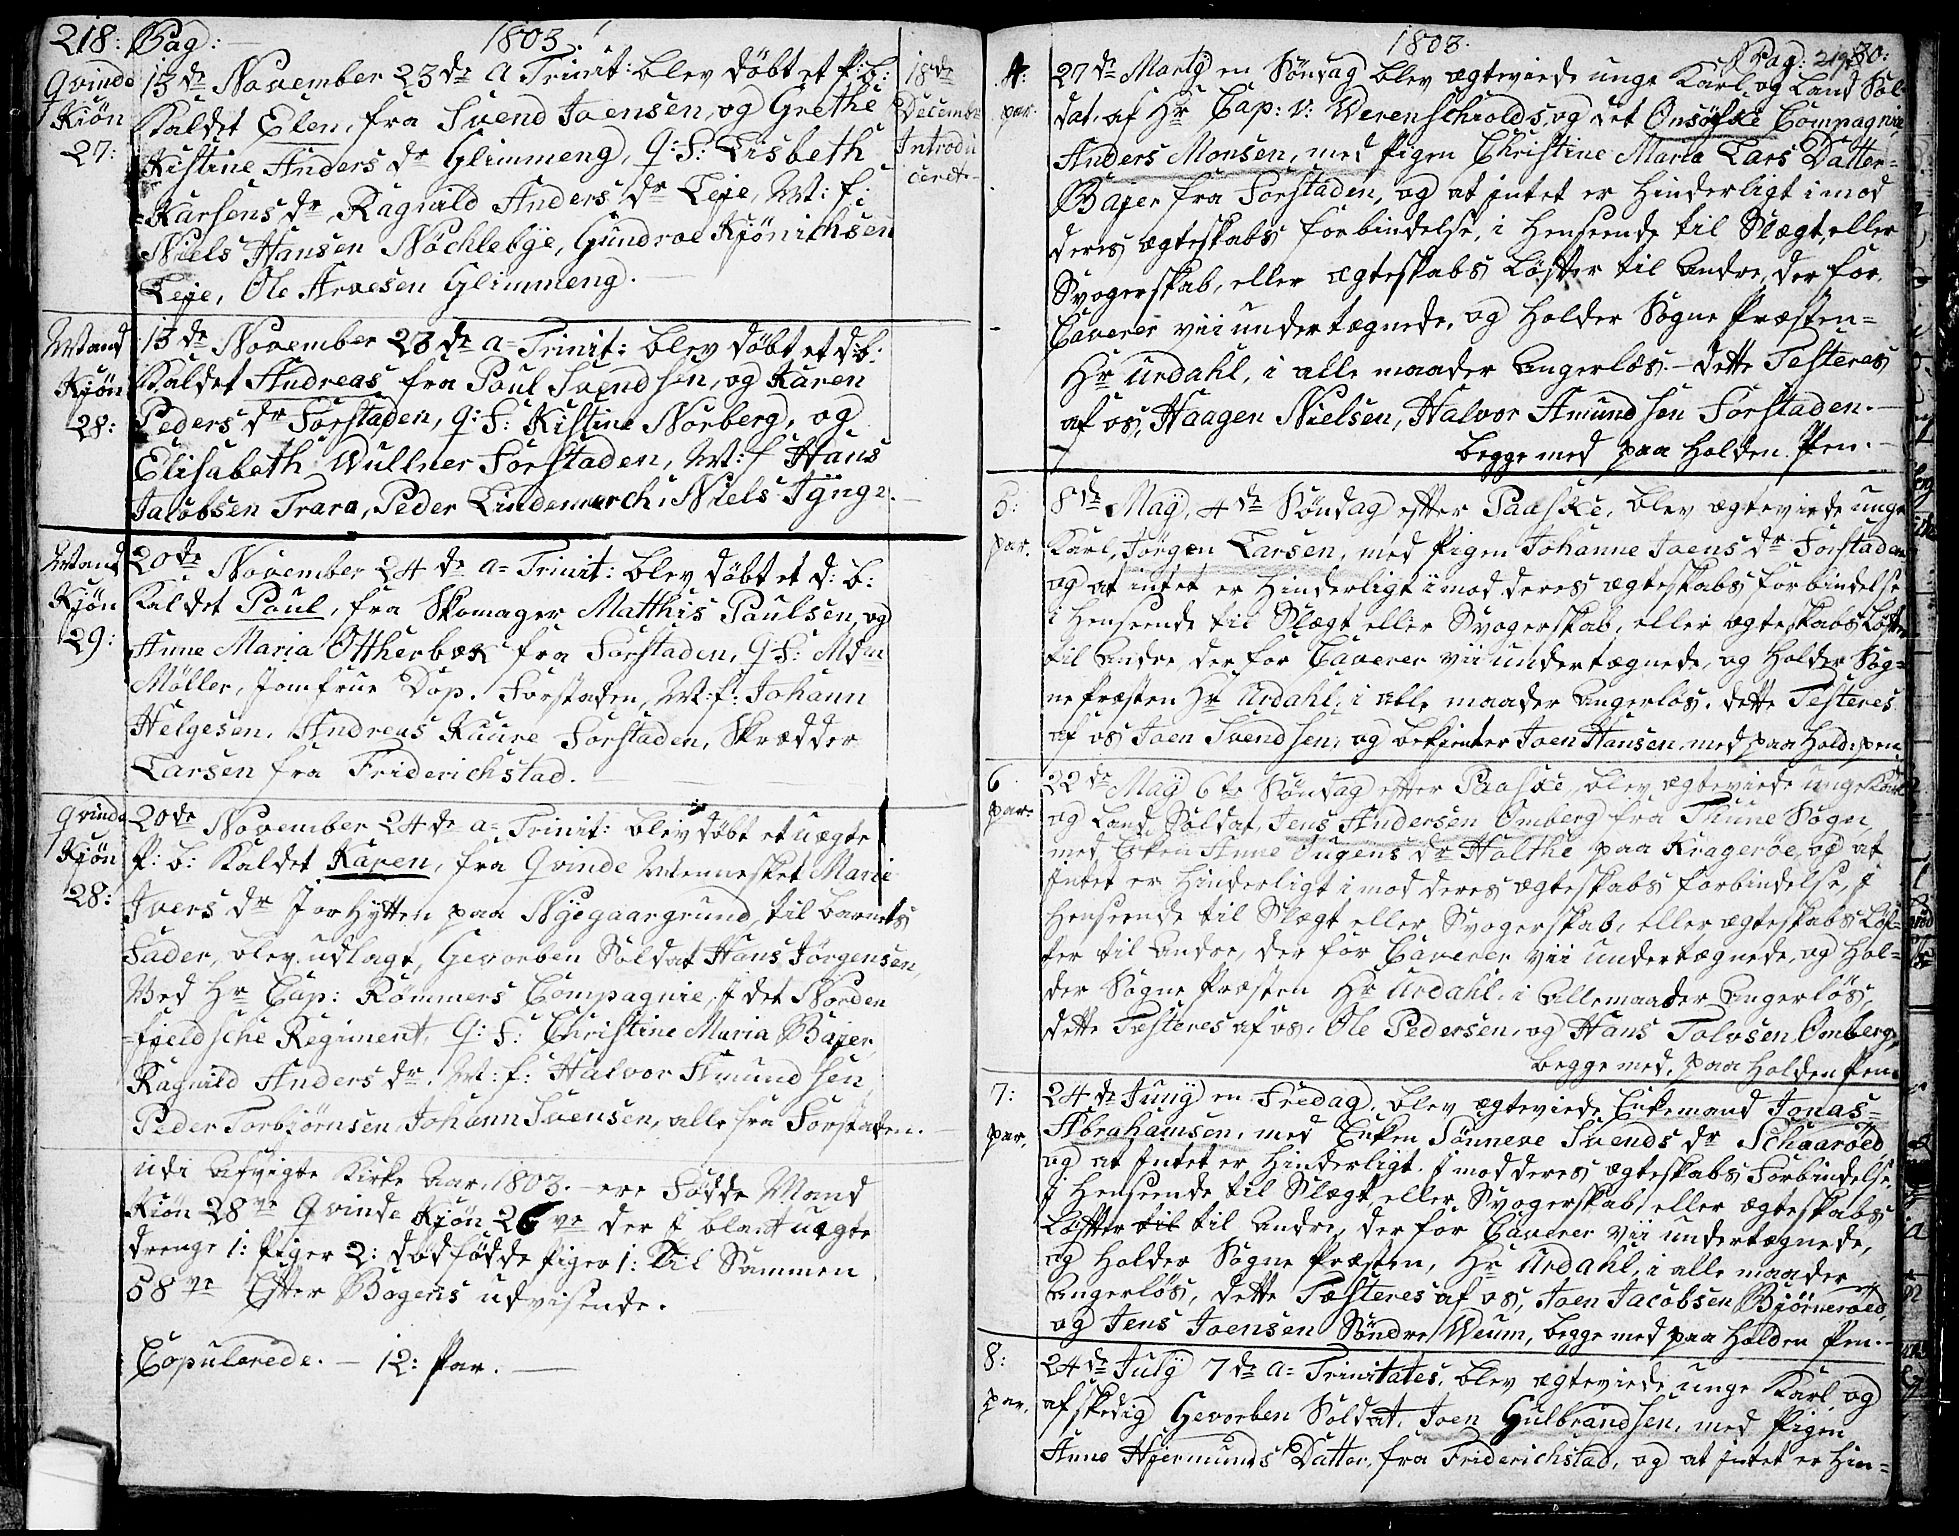 218: Pag: 1803.
Qvinde Kiøn 27:
13de November 23de a Trinit: blev døbt et p: b:
Kaldet Elen, fra Svend Joensen, og Grethe
Kistine Anders dr Glimmeng, Q: F: Lisbeth
Karsens dr, Ragnild Anders dr Leje, M: f:
Niels Hansen Nöchlebÿe, Gundroe Kjönichsen
Leje, Ole Arvesen Glimmeng.
18de
December
Introdu
ceret
Mand Kjøn 28:
13de November 23de a= Trinit: blev døbt et d: b:
Kaldet Andreas fra Poul Svendsen, og Karen
Peders dr Forstaden, Q: F: Kistine Norberg, og
Elisabeth Wullner Forstaden, M: f Hans
Jacobsen Trara, Peder Lindemarch, Niels Tÿnge.
Mand Kjøn 29:
20de November 24de a= Trinit: blev døbt et d: b:
Kaldet Poul, fra Skomager Matthis Paulsen, og
Anne Maria Ottherbæk fra Forstaden, Q F: Mdm
Møller, Jomfrue Dop. Forstaden, M: f: Johann
Helgesen, Andreas Kuure Forstaden, Skrædder
Larsen fra Friderichstad.
Qvinde Kjøn 28:
20de November 24de a= Trinit: blev døbt et uægte
p: b: Kaldet Karen, fra Qvinde Mennesket Marie
Ivers dr Jorhytten paa Nÿegaargrund, til barnets
Fader, blev udlagt, Gevorben Soldat Hans Jörgensen,
Med Hr Cap: Römmers Compagnie, I det Norden
=fjeldsche Regiment, Q: F: Christine Maria Bajer,
Ragnild Anders dr. M: f: Halvor Amundsen,
Peder Torbjörnsen, Johann Svensen, alle fra Forstaden.
udi Afvigte Kirke Aar 1803. – ere Fødde Mand
Kiøn 28ve Qvinde Kjøn 26ve der I blant uægte
drenge 1: Piger 2: dødfødde piger 1: Til Sammen
58ve Efter Bogens udvisende.
Copulerede. – 12: Par.
1803. Pag: 219
4: par.
27de Martÿ en Søndag blev ægteviede unge Karl og Land Sol=
dat, af Hr Cap: v: Werenschiolds, og det Onsøiske Compagnie
Anders Monsen, med Pigen Christine Maria Lars Datter
Bajer fra Forstaden, og at intet er Hinderligt imod
deres ægteskabs forbindelse, i Henseende til Slægt, eller
Svogerskab, eller ægteskabs Løfter til andre, der for
Caverer vii undertægnede, og Holder Sogne Præsten=
Hr Urdahl, i alle maader angerløs. – dette Testeres
af os, Haagen Nielsen, Halvor Amundsen Forstaden. –
begge med paa Holden Pen. –
5: par.
8de Maÿ, 4de Søndag efter Paaske, blev ægteviede unge
Karl, Jörgen Larsen, med Pigen Johanne Joens dr Forstaden
og at intet er Hinderligt imod deres ægteskabs forbindelse
i Henseende til Slægt eller Svogerskab, eller ægteskabs Løfter
til andre, der for Caverer vii undertægnede, og Holder Sog=
ne Præsten Hr Urdahl, i alle maader angerløs. dette Testeres
af os Joen Svendsen, og bekjenter Joen Hansen, med paa Hold: pen
6 par:
22de Maÿ 6te Søndag efter Paaske, blev ægteviede unge Karl
og Land Soldat, Jens Andersen Omberg fra Thune Sogn,
med Enken Anne Ougens dr Holthe paa Kragerøe, og at
Intet er Hinderligt imod deres ægteskabs forbindelse, I
Henseende til Slægt eller Svogerskab, eller ægteskabs Løf=
ter til andre, der for Caverer vii undertægnede, og Hol=
der Sogne Præsten Hr Urdahl, i alle maader angerløs,
dette Tæsteres af os, Ole Pedersen, og Hans Tolvsen Omberg,
begge med, paa Holden Pen.
7: par.
24de Junÿ en Fredag, blev ægteviede Enkemand Jonas=
Abrahamsen, med Enken Sönneve Svends dr Schaaröed
og at Intet er Hinderligt. I mod deres ægteskabs Forbindelse,
I Henseende til Slægt, eller Svogerskab, eller ægteskabs
Løfter til til andre, der for Caverer vii undertægnede,
og Holder Sogne Præsten, Hr Urdahl, i alle maader
angerløs, dette Tæsteres af os, Joen Jacobsen Bjørneröed,
og Jens Joensen Söndre Weum, begge med paa Holden Pen. –
8: par.
24de Julÿ 7de a= Trinitates, blev ægteviede unge Karl, og
afskedig Gevorben Soldat, Joen Gulbrandsen, med Pigen
Anne Hjermunds Datter, fra Friderichstad, og at Intet er Hin=